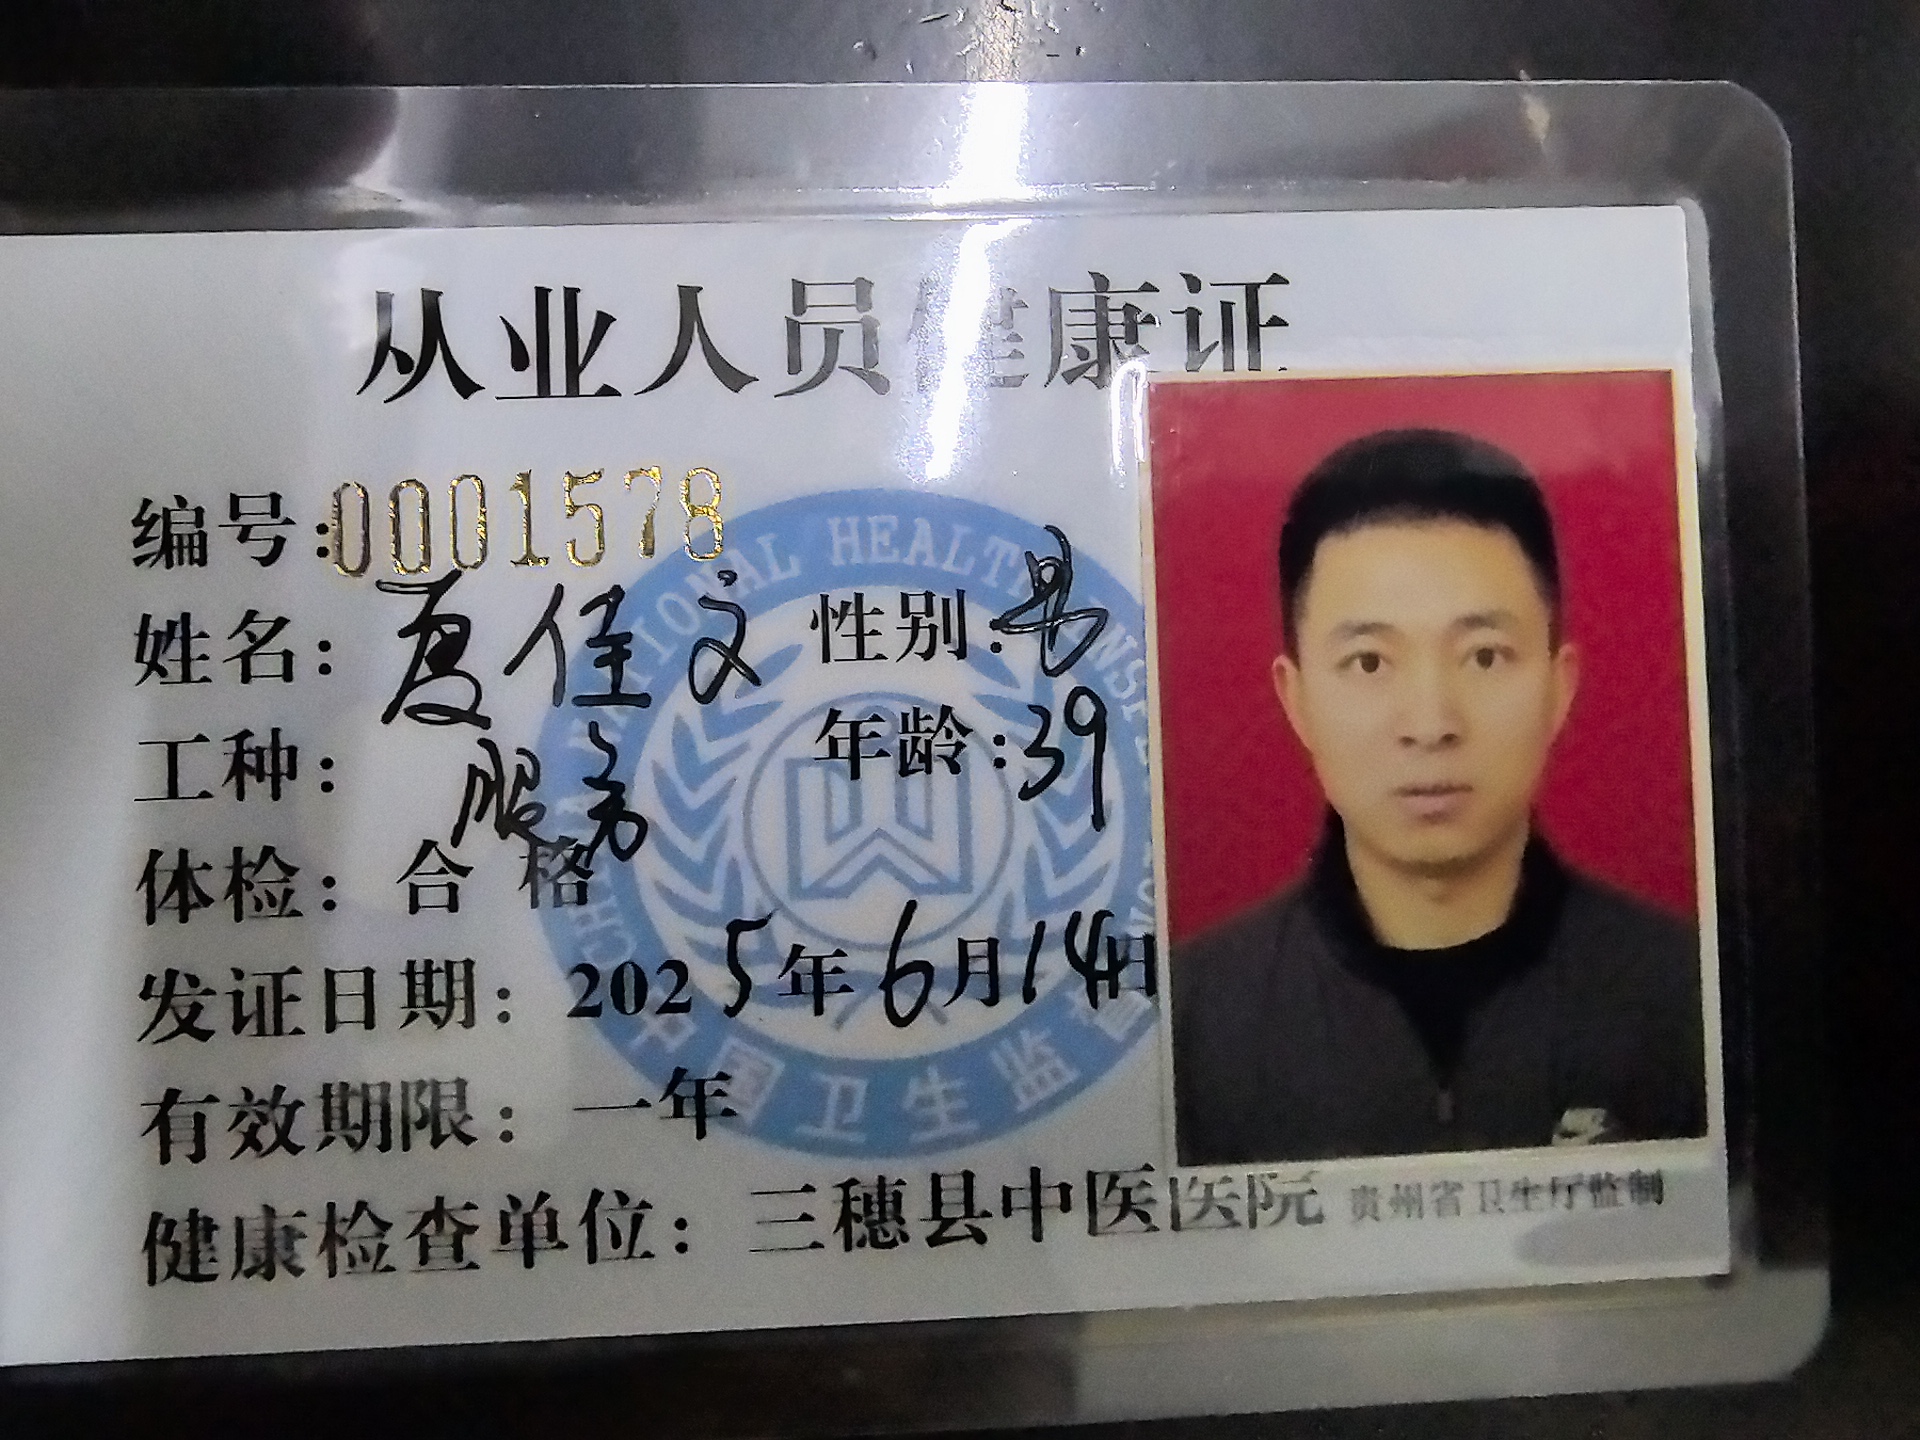 从业人员健康证
编号:0001578
姓名: 夏佳文 性别: 男
工种: 服务 年龄: 39
体检: 合格
发证日期: 2025年6月14日
有效期限: 一年
健康检查单位: 三穗县中医医院 贵州省卫生厅监制
NATIONAL HEALTH INSP
中国卫生监督